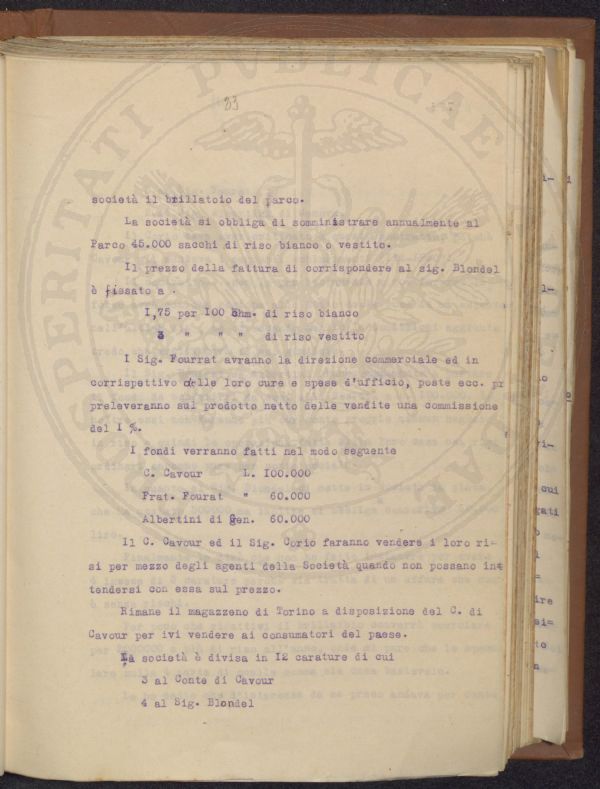 33
società il brillatoio del parco.
La società si obbliga di somministrare annualmente al
Parco 45.000 sacchi di riso bianco o vestito.
Il prezzo della fattura di corrispondere al sig. Blondel
è fissato a .
I,75 per I00 Chm. di riso bianco
3 " " " di riso vestito
I Sig. Fourrat avranno la direzione commerciale ed in
corrispettivo delle loro cure e spese d'ufficio, poste ecc. pr
preleveranno sul prodotto netto delle vendite una commissione
del I %.
I fondi verranno fatti nel modo seguente
C. Cavour L. I00.000
Frat. Fourat " 60.000
Albertini di Gen. 60.000
Il C. Cavour ed il Sig. Corio faranno vendere i loro ri=
si per mezzo degli agenti della Società quando non possano int
tendersi con essa sul prezzo.
Rimane il magazzeno di Torino a disposizione del C. di
Cavour per ivi vendere ai consumatori del paese.
La società è divisa in I2 carature di cui
3 al Conte di Cavour
4 al Sig. Blondel
PROSPERITATI PVBLICAE